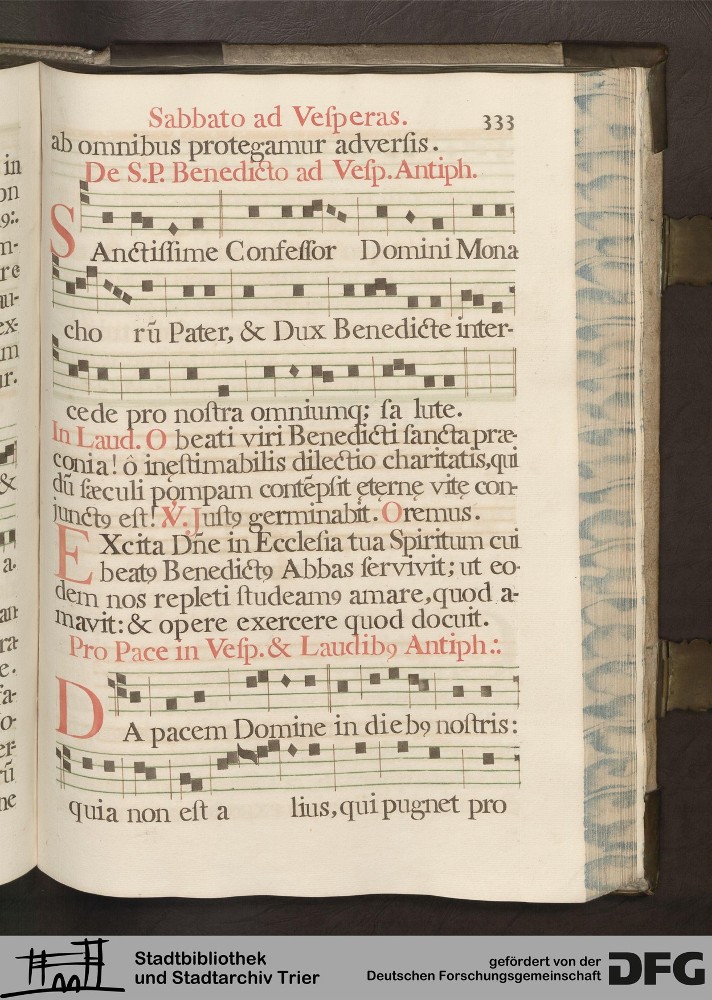 Sabbato ad Veſperas. 333
ab omnibus protegamur adverſis.
De S.P. Benedicto ad Veſp. Antiph.
SAnctiſſime Confeſſor Domini Mona
cho rū Pater, & Dux Benedicte inter-
cede pro noſtra omniumq; ſa lute.
In Laud. O beati viri Benedicti ſancta præ-
conia! ô ineſtimabilis dilectio charitatis, qui
dū ſæculi pompam contēpſit ęternę vitę con-
junctꝯ eſt! ℣. Juſtꝯ germinabit. Oremus.
EXcita Dn̄e in Eccleſia tua Spiritum cui
beatꝯ Benedictꝯ Abbas ſervivit; ut eo-
dem nos repleti ſtudeamꝯ amare, quod a-
mavit: & opere exercere quod docuit.
Pro Pace in Veſp. & Laudibꝯ Antiph:.
DA pacem Domine in diebꝯ noſtris:
quia non eſt a lius, qui pugnet pro
in
on
9:.
m-
re
au-
ex-
m
ur.
&
a.
an
ra-
e.
fa-
o-
er-
rū
ne
Stadtbibliothek
und Stadtarchiv Trier
gefördert von der
Deutschen Forschungsgemeinschaft
DFG